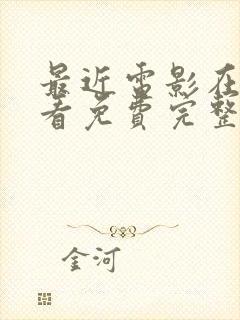 最近電影在
看免費完整
金河